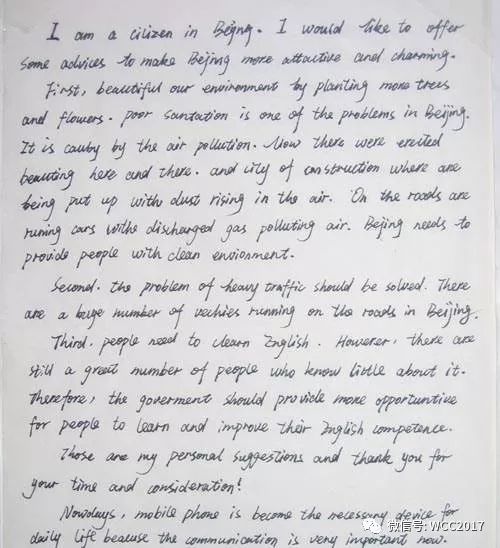 I am a cilizen in Bejng. I would like to offer
some advices to make Beijing more attractive and charming.
First, beautiful our environment by planting more trees
and flowers. Poor santation is one of the problems in Beijing.
It is cauby by the air pollution. Now there were erected
beauting here and there. and city of construction where are
being put up with dust rising in the air. On the roads are
runing cars withe discharged gas polluting air. Bejing needs to
provide people with clean enviorment.
Second. the problem of heavy traffic should be solved. There
are a huge number of vechies running on the roads in Beijing.
Third. people need to learn English. However, there are
still a great number of people who know little about it.
Therefore, the goverment should provide more opportuntive
for people to learn and improve their English competence.
Those are my personal suggestions and thank you for
your time and consideration!
Nowdays, mobile phone is become the necessary device for
daily life because the communication is very important now.
微信号: WCC2017